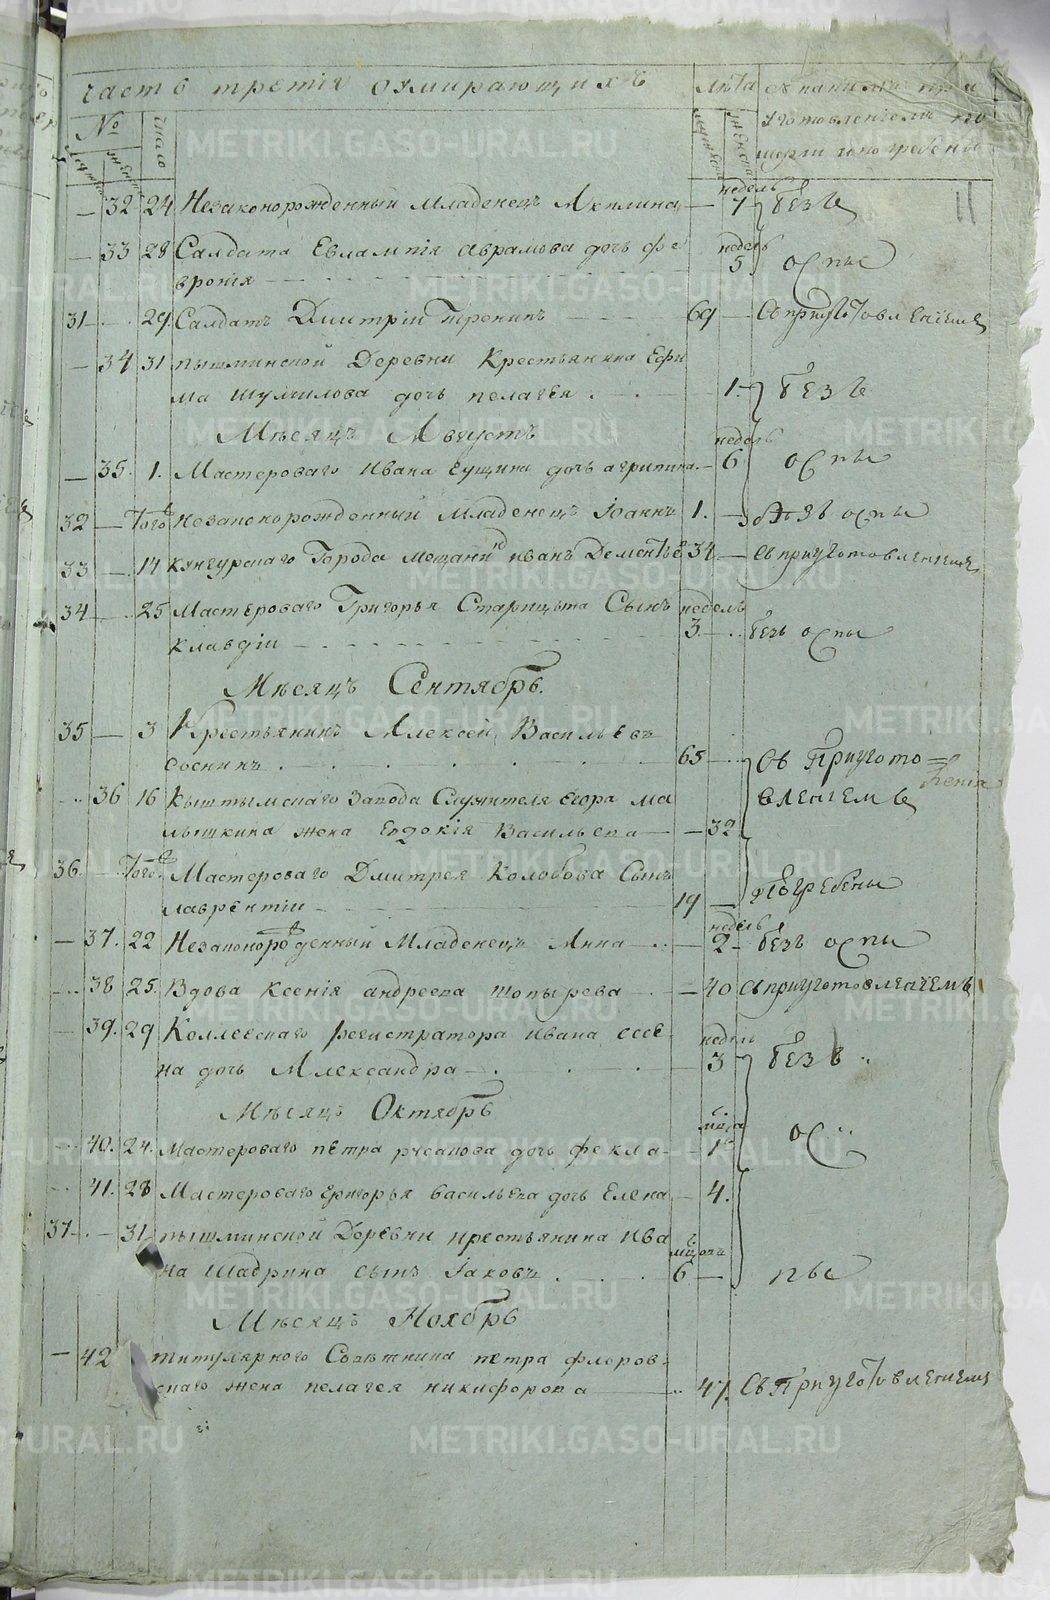 часть третія о умирающихъ лѣта съ какимъ при
№ число уготовленіемъ по
мужеск женска мужеск женска мерли и погребены
11
недель
— 32 24 Незаконорожденный Младенецъ Акилина — 7 безъ
недель
— 33 28 Салдата Евлампія Аврамова дочь фе 5 оспы
вронія
31 — 29 Салдатъ Дмитрій 69 — Съ приуготовленіемъ
— 34 31 пышминской Деревни Крестьянина Ефи
ма Шумилова дочь пелагея 1 безъ
Мѣсяцъ Августъ недель
— 35. 1. Мастероваго Ивана дочь агрипина — 6 оспы
32 — Того Незаконорожденный Младенецъ Іоаннъ 1. — оспы
33 — 14 кунгурскаго Города Мещанинъ иванъ Дементьевъ 34 — Съ приуготовленіемъ
34 — 25 Мастероваго Григорья Старицына Сынъ недель
клавдіи 3 — безъ оспы
Мѣсяцъ Сентябрь.
35 — 3 Крестьянинъ Алексей Васильевъ
соснинъ 65 — Съ Приугото=
36 16 Кыштымскаго Завода Служителя Егора ма вленіемъ
лышкина жена Евдокія Васильева — 32
36 — Того Мастероваго Дмитрея Колобова Сынъ
лаврентіи 19 — погребены
недель
— 37. 22 Незаконорожденный Младенецъ Анна — 2 — безъ оспы
38 25. Вдова Ксенія андреева — 40 Съ приуготовленіемъ
— 39. 29 Коллескаго регистратора ивана есе недель
на дочь Александра 3 безъ
Мѣсяцъ Октябрь
мѣца
40. 24. Мастероваго петра русанова дочь фекла — 1 ос
41. 28 Мастероваго григорья васильева дочь Елена — 4.
37 — 31 пышминской Деревни крестьянина ива
на Шадрина сынъ Іаковъ 6 — пы
Мѣсяцъ Ноябрь
— 42 титулярного Советника петра флоров=
скаго жена пелагея никифорова 47. Съ Приуготовленіемъ